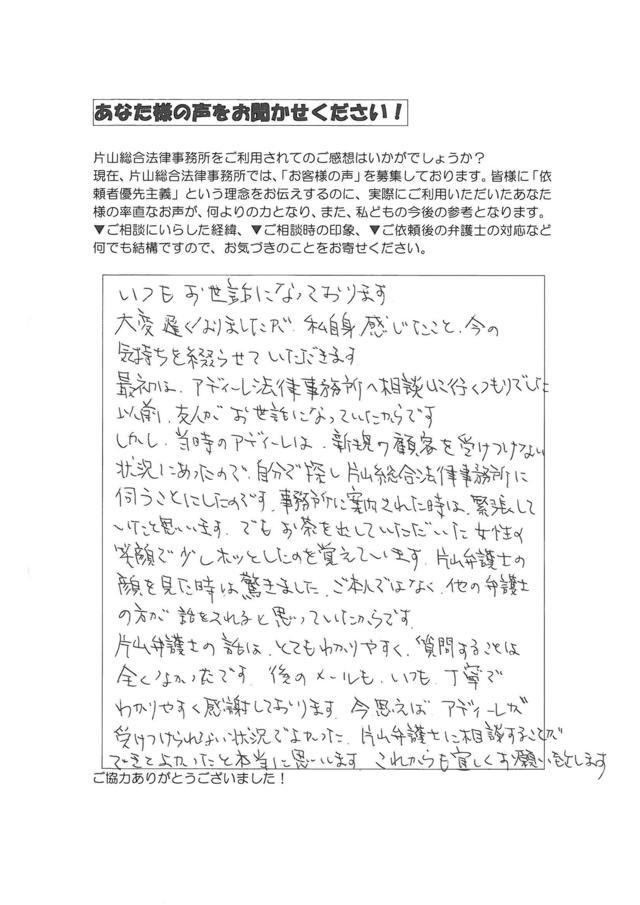 あなた様の声をお聞かせください！
片山総合法律事務所をご利用されてのご感想はいかがでしょうか？
現在、片山総合法律事務所では、「お客様の声」を募集しております。皆様に「依
頼者優先主義」という理念をお伝えするのに、実際にご利用いただいたあなた
様の率直なお声が、何よりの力となり、また、私どもの今後の参考となります。
▼ご相談にいらした経緯、▼ご相談時の印象、▼ご依頼後の弁護士の対応など
何でも結構ですので、お気づきのことをお寄せください。
いつもお世話になっております
大変遅くなりましたが、私自身感じたこと、今の
気持ちを綴らせていただきます
最初は、アディーレ法律事務所へ相談しに行くつもりでした
以前、友人がお世話になっていたからです
しかし、当時のアディーレは、新規の顧客を受けつけない
状況にあったので、自分で探し片山総合法律事務所に
伺うことにしたのです。事務所に案内された時は、緊張して
いたと思います。でもお茶を出していただいた女性の
笑顔で少しホッとしたのを覚えています。片山弁護士の
顔を見た時は驚きました。ご本人ではなく、他の弁護士
の方が話をされると思っていたからです。
片山弁護士の話は、とてもわかりやすく、質問することは
全くなかったです。後のメールも、いつも、丁寧で
わかりやすく感謝しております。今思えば、アディーレが
受けつけられない状況でよかった、片山弁護士に相談することが
できてよかったと本当に思います。これからも宜しくお願い致します
ご協力ありがとうございました！